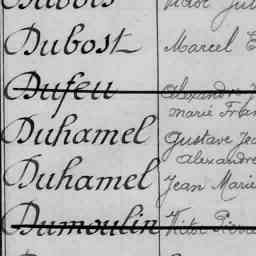 Dubois
Dubost Marcel E
Dufeu Alexandre J
marié Fran
Duhamel Gustave Jea
Alexandre
Duhamel Jean Marie
Dumoulin Victor Pierre